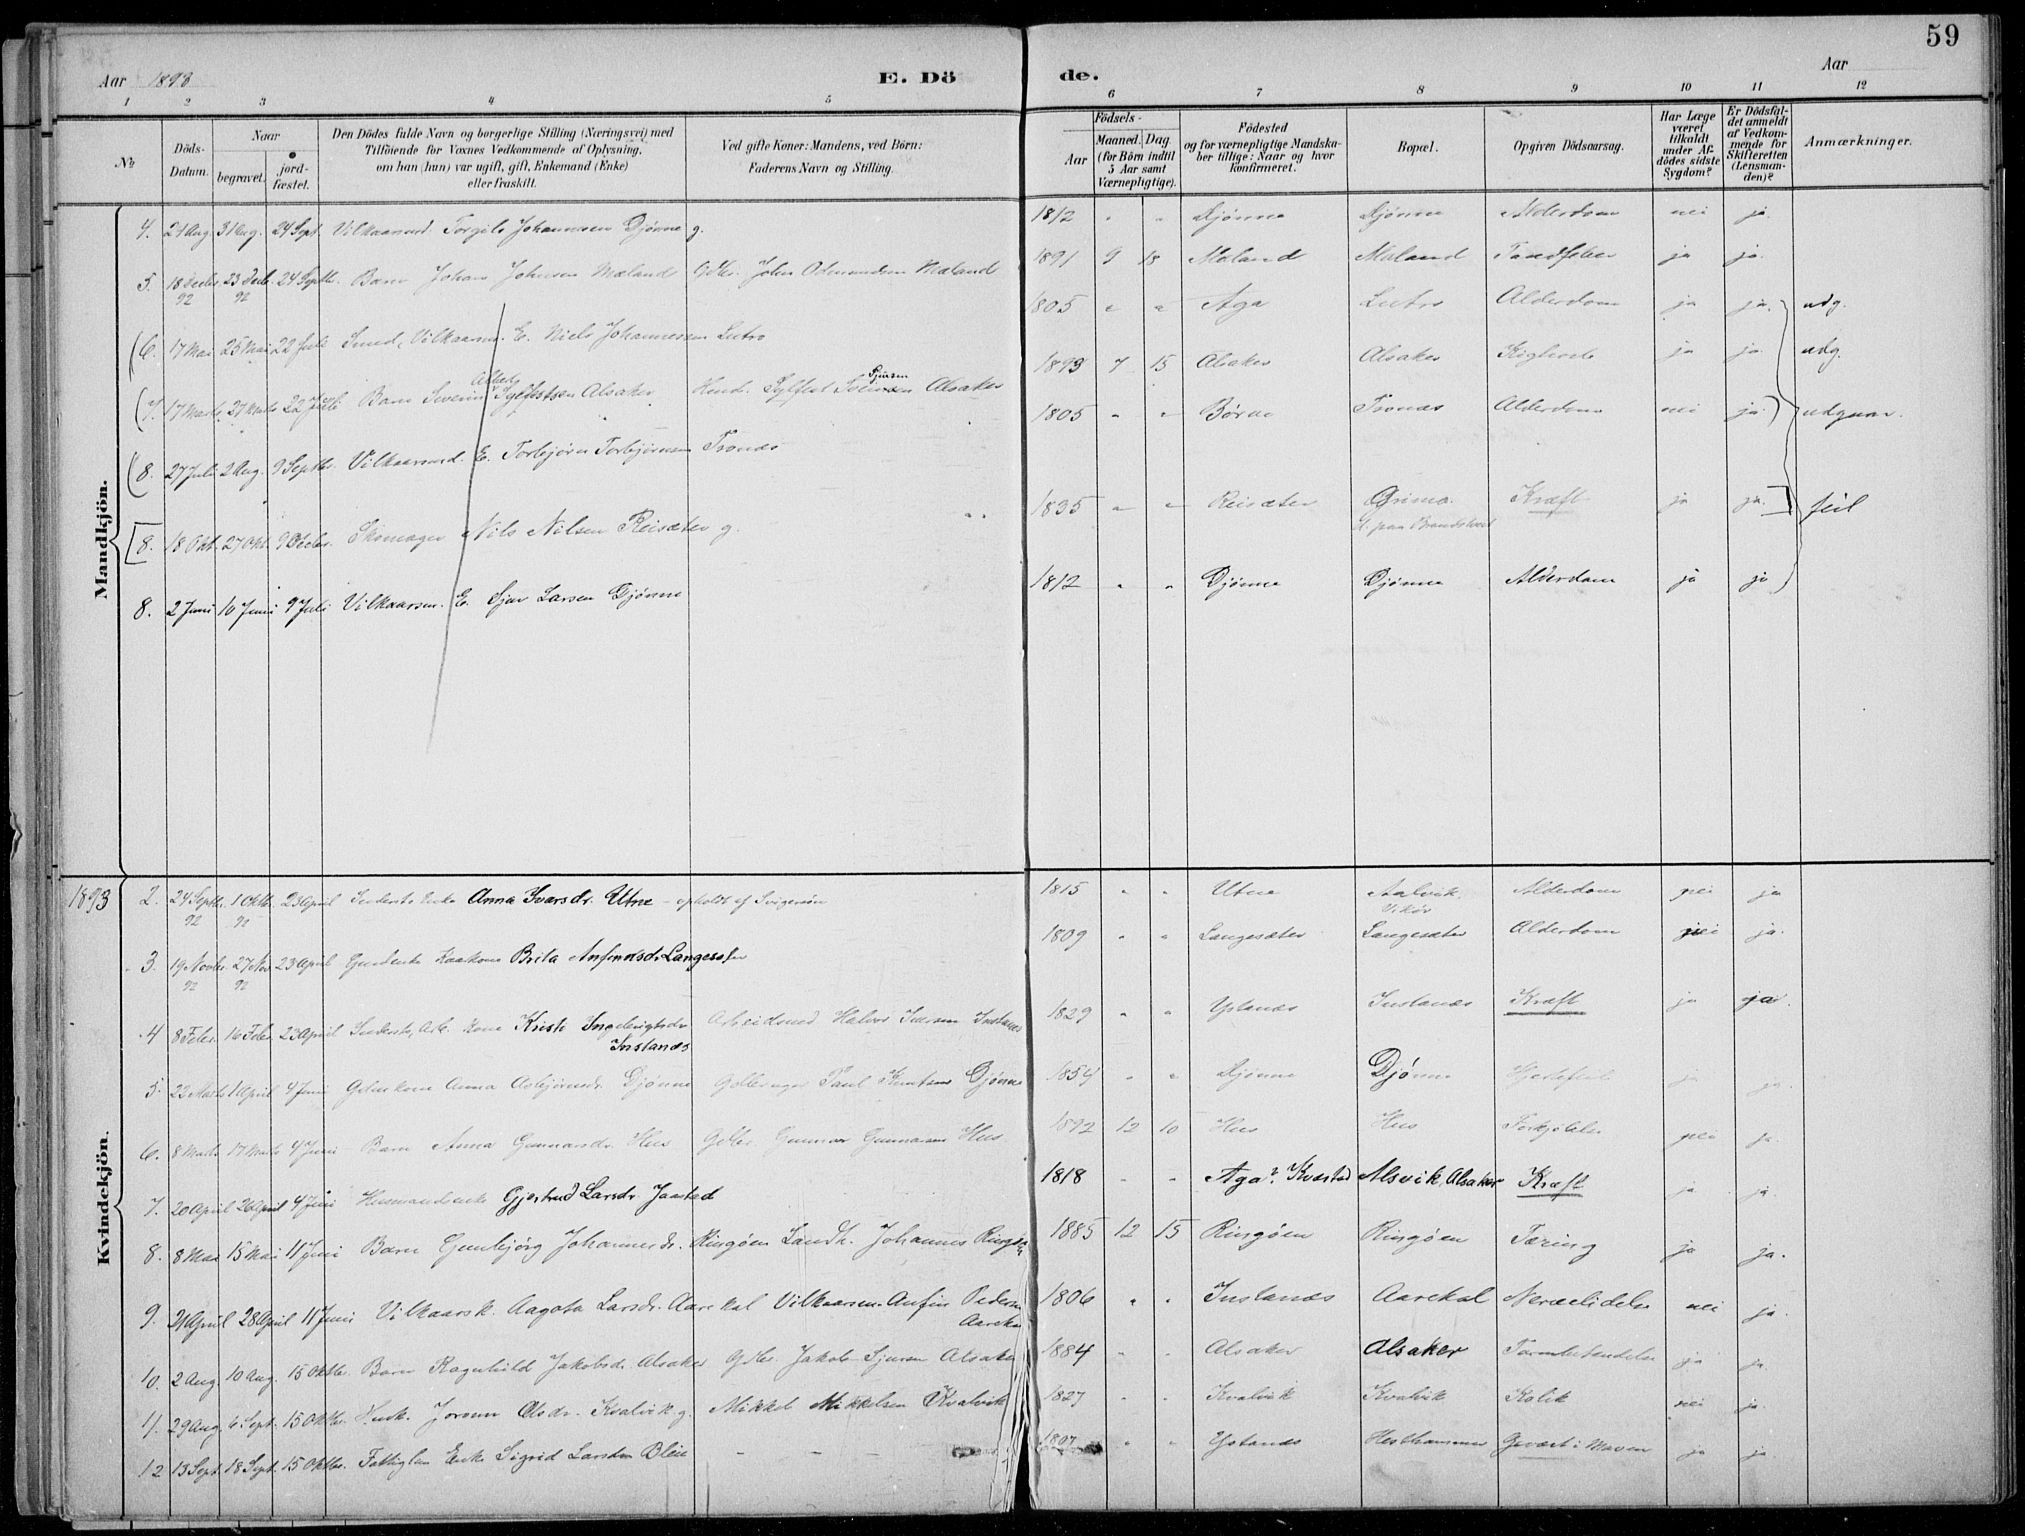 59
Aar 1893 E. Dö de. Aar
1 2 3 4 5 6 7 8 9 10 11 12
No
Döds-Datum.
Naar begravet. jordfæstet.
Den Dödes fulde Navn og borgerlige Stilling (Næringsvei) med Tilföiende for Voxnes Vedkommende af Oplysning, om han (hun) var ugift, gift, Enkemand (Enke) eller fraskilt.
Ved gifte Koner: Mandens, ved Börn: Faderens Navn og Stilling.
Födsels- Aar Maaned. Dag (for Börn indtil 5 Aar samt Værnepligtige).
Födested og for værnepligtige Mandskaber tillige: Naar og hvor konfirmeret.
Bopæl.
Opgiven Dödsaarsag.
Har Læge været tilkaldt under Afdödes sidste Sygdom?
Er Dödsfaldet anmeldt af Vedkommende for Skifteretten (Lensmanden)?
Anmærkninger.
Mandkjön.
4. 21 Aug. 31 Aug. 24 Sept. Vilkaarsmd. Torgils Johannesen Djønne g. 1812 " " Djønne Djønne Alderdom nei ja.
5. 18 Decbr. 92 23 Decb. 92 24 Septbr. Barn Johan Johnsen Mæland Gdbr. John Odmundsen Mæland 1891 9 18 Mæland Mæland Tandfeber ja ja.
(6. 17 Mai 25 Mai 22 Juli Smed, Vilkaarsm. E. Niels Johannesen Lutro 1805 " " Aga Lutro Alderdom ja ja. udg.
(7. 17 Marts 27 Marts 22 Juli Barn Severin Sylfestsen Alsaker Husmd. Sylfest Sjursen Alsaker 1893 7 15 Alsaker Alsaker Kighoste ja ja. udg.
(8. 27 Juli 2 Aug. 9 Septbr. Vilkaarsmd. E. Torbjørn Torbjørnsen Tronæs 1805 " " Børve Tronæs Alderdom nei ja.) udgaar.
[8. 18 Okt. 27 Okt. 9 Decbr. Skomager Nils Nilsen Reisæter g. 1835 " " Reisæter Grimo. Kræft ja ja.] feil
8. 2 Juni 10 Juni 9 Juli Vilkaarsm. E. Sjur Larsen Djønne 1812 " " Djønne Djønne Alderdom ja ja
1893
Kvindekjön.
2. 24 Septb. 92 1 Oktb. 92 23 April Inderste Enke Anna Ivarsdr. Utne - opholdt af Svigersøn 1815 " " Utne Aalvik. Vikør Alderdom nei ja
3. 19 Novbr. 92 27 Nov 92 23 April Brita Anfindsdr. Langesæter 1809 " " Langesæter Langesæter Alderdom nei ja.
4 8 Febr. 16 Febr. 23 April Inderste, Arb. Kone Kristi Ingebrigtsdr Instanæs Arbeidsmd Halvor Iversen Instanæs 1829 " " Ystanæs Instanæs Kræft ja ja.
5. 22 Marts 1 April 4 Juni Gdmkone Anna Asbjørnsdr. Djønne Gdbruger Paul Knutsen Djønne 1854 " " Djønne Djønne Hjertefeil ja ja.
6. 8 Marts 17 Marts 4 Juni Barn Anna Gunnarsdr. Hus Gdbr. Gunnar Gunnarsen Hus. 1892 12 10 Hus Hus Forkjølelse nei ja.
7. 20 April 26 April 4 Juni Husmandsenke Gjertrud Larsdr Jaastad 1818 " " Aga? Kvestad Alsvik, Alsaker Kræft ja ja.
8. 8 Mai 15 Mai 11 Juni Barn Gunbjørg Johannesdr. Ringøen Landh. Johannes Ringøen 1885 12 15 Ringøen Ringøen Tæring ja ja.
9. 21 April 28 April 11 Juni Vilkaarsk. Aagota Larsdr. Aarekol Vilkaarsm. Anfin Pedersen Aarekol 1806 " " Instanæs Aarekol Nervelidelse nei ja.
10. 2 Aug. 10 Aug. 15 Oktbr. Barn Ragnhild Jakobsdr. Alsaker Gdbr. Jakob Sjursen Alsaker 1884 " " Alsaker Alsaker Tarmbetændelse ja ja.
11. 29 Aug. 6 Sept. 15 Oktbr. Husk. Jorunn Olsdr. Kvalvik g. Mikkel Mikkelsen Kvalvik 1827 " " Kvalvik Kvalvik Kolik nei ja.
12 13 Sept. 18 Sept. 15 Oktbr. Fattiglem Enke Sigrid Larsdtr Bleie - - - 1807 " " Ystanæs Hesthammer Gevext i Maven ja ja.